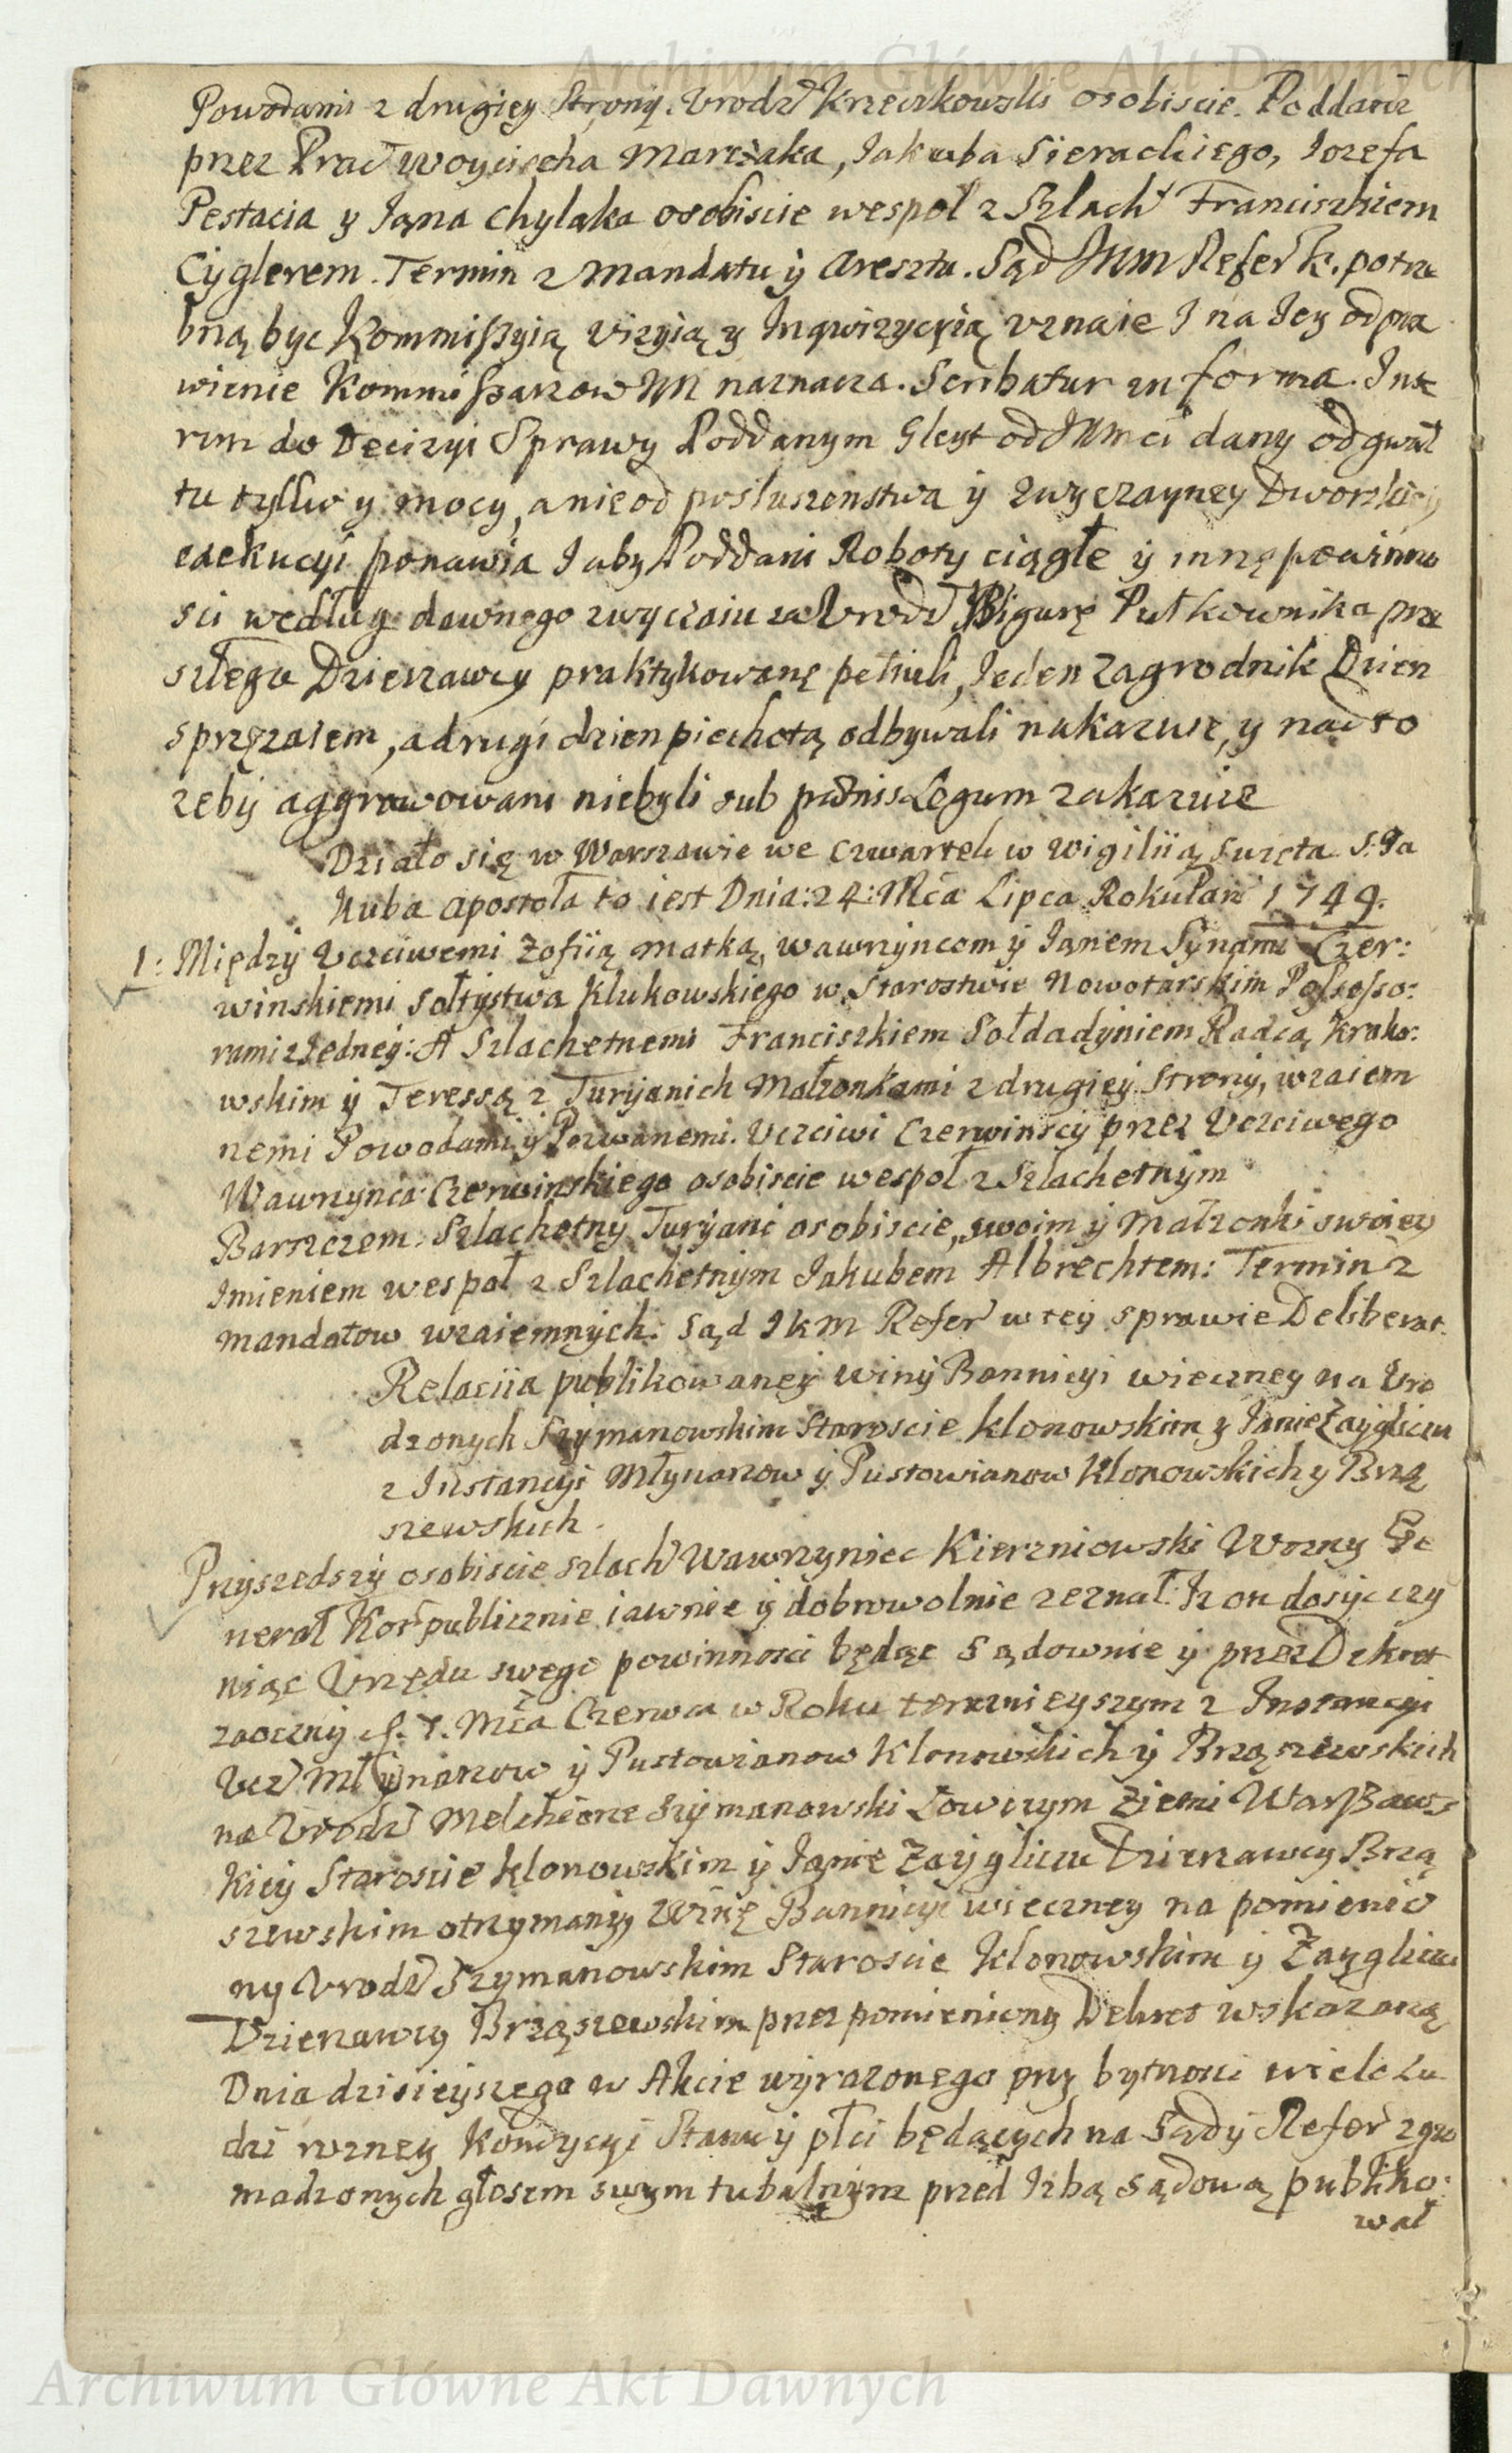 Archiwum Główne Akt Dawnych
Powodami z drugiey Strony. Urodz Krzeczkowski osobiscie. Poddani
przez Prac Woyciecha Marczaka, Jakuba Sierackiego, Jozefa
Pestacia y Jana Chylaka osobiscie wespoł z Szlach Franciszkiem
Cyglerem. Termin z Mandatu y Aresztu. Sąd JKM Refer k. potrze
bną byc Kommissyią Vizyią y Inqwizycyią uznaie I na Jey odpra
wienie Kommissarzow JKM naznacza. Scribatur in forma. Inte
rim do Decizyi Sprawy Poddanym Gleyt od JKMci dany od gwał
tu tylko y mocy, a nie od posłuszenstwa y zwyczayney Dworskiey
exekucyi ponawia I aby Poddani Roboty ciągłe y innę powinno
sci według dawnego zwyczaiu za Urodz Bigurę Pułkownika prze
szłego Dzierzawcy praktykowanę pełnili, Jeden Zagrodnik Dzien
sprzęzaiem, a drugi dzien piechotą odbywali nakazuie, y nadto
zeby aggrawowani niebyli sub pænis Legum zakazuie
Działo się w Warszawie we Czwartek w Wigiliią Swięta S. Ja
kuba Apostoła to iest Dnia: 24: Mca Lipca Roku Pań 1749.
1: Między Uczciwemi Zofiią Matką, Wawrzyncem y Janem Synami Czer:
winskiemi Sołtystwa Klukowskiego w Starostwie Nowotarskim Possesso:
rami z Jedney: A Szlachetnemi Franciszkiem Sołdadyniem Radcą Krako:
wskim y Teressą z Turyanich Małzonkami z drugiey Strony, wzaiem
nemi Powodami y Pozwanemi. Uczciwi Czerwinscy przez Uczciwego
Wawrzynca Czerwinskiego osobiscie wespoł z Szlachetnym
Barszczem. Szlachetny Turyani osobiscie, swoim y Małzonki swoiey
Imieniem wespoł z Szlachetnym Jakubem Albrechtem: Termin z
Mandatow wzaiemnych. Sąd JKM Refer w tey sprawie Deliberat.
Relaciia publikowaney winy Bannicyi wieczney na Uro
dzonych Szymanowskim Staroscie Klonowskim y Janie Zayglicu
z Instancyi Młynarzow y Pustowianow Klonowskich y Brzą
szewskich.
Przyszedszy osobiscie Szlach Wawrzyniec Kierzniowski Wozny Ge
nerał Kor publicznie iawnie y dobrowolnie zeznał. Iz on dosyc czy
niąc Urzędu swego powinnosci będąc Sądownie y przez Dekret
zaoczny d. 7. Mca Czerwca w Roku teraznieyszym z Instancyi
Ucz Młynarzow y Pustowianow Klonowskich y Brząszewskich
na Urodz Melchiorze Szymanowski Łowczym Ziemi Warszaws
kiey Staroscie Klonowskim y Janie Zayglicu Dzierzawcy Brzą
szewskim otrzymany Winę Bannicyi wieczney na pomienio
ny Urodz Szymanowskim Staroscie Klonowskim y Zayglicu
Dzierzawcy Brząszewskim przez pomieniony Dekret wskazaną
Dnia dzisieyszego w Akcie wyrazonego przy bytnosci wiele Lu
dzi rozney Kondycyi Stanu y płci będących na Sądy Refer zgro
madzonych głosem swym tubalnym przed Izbą Sądową publiko:
wał
Archiwum Główne Akt Dawnych